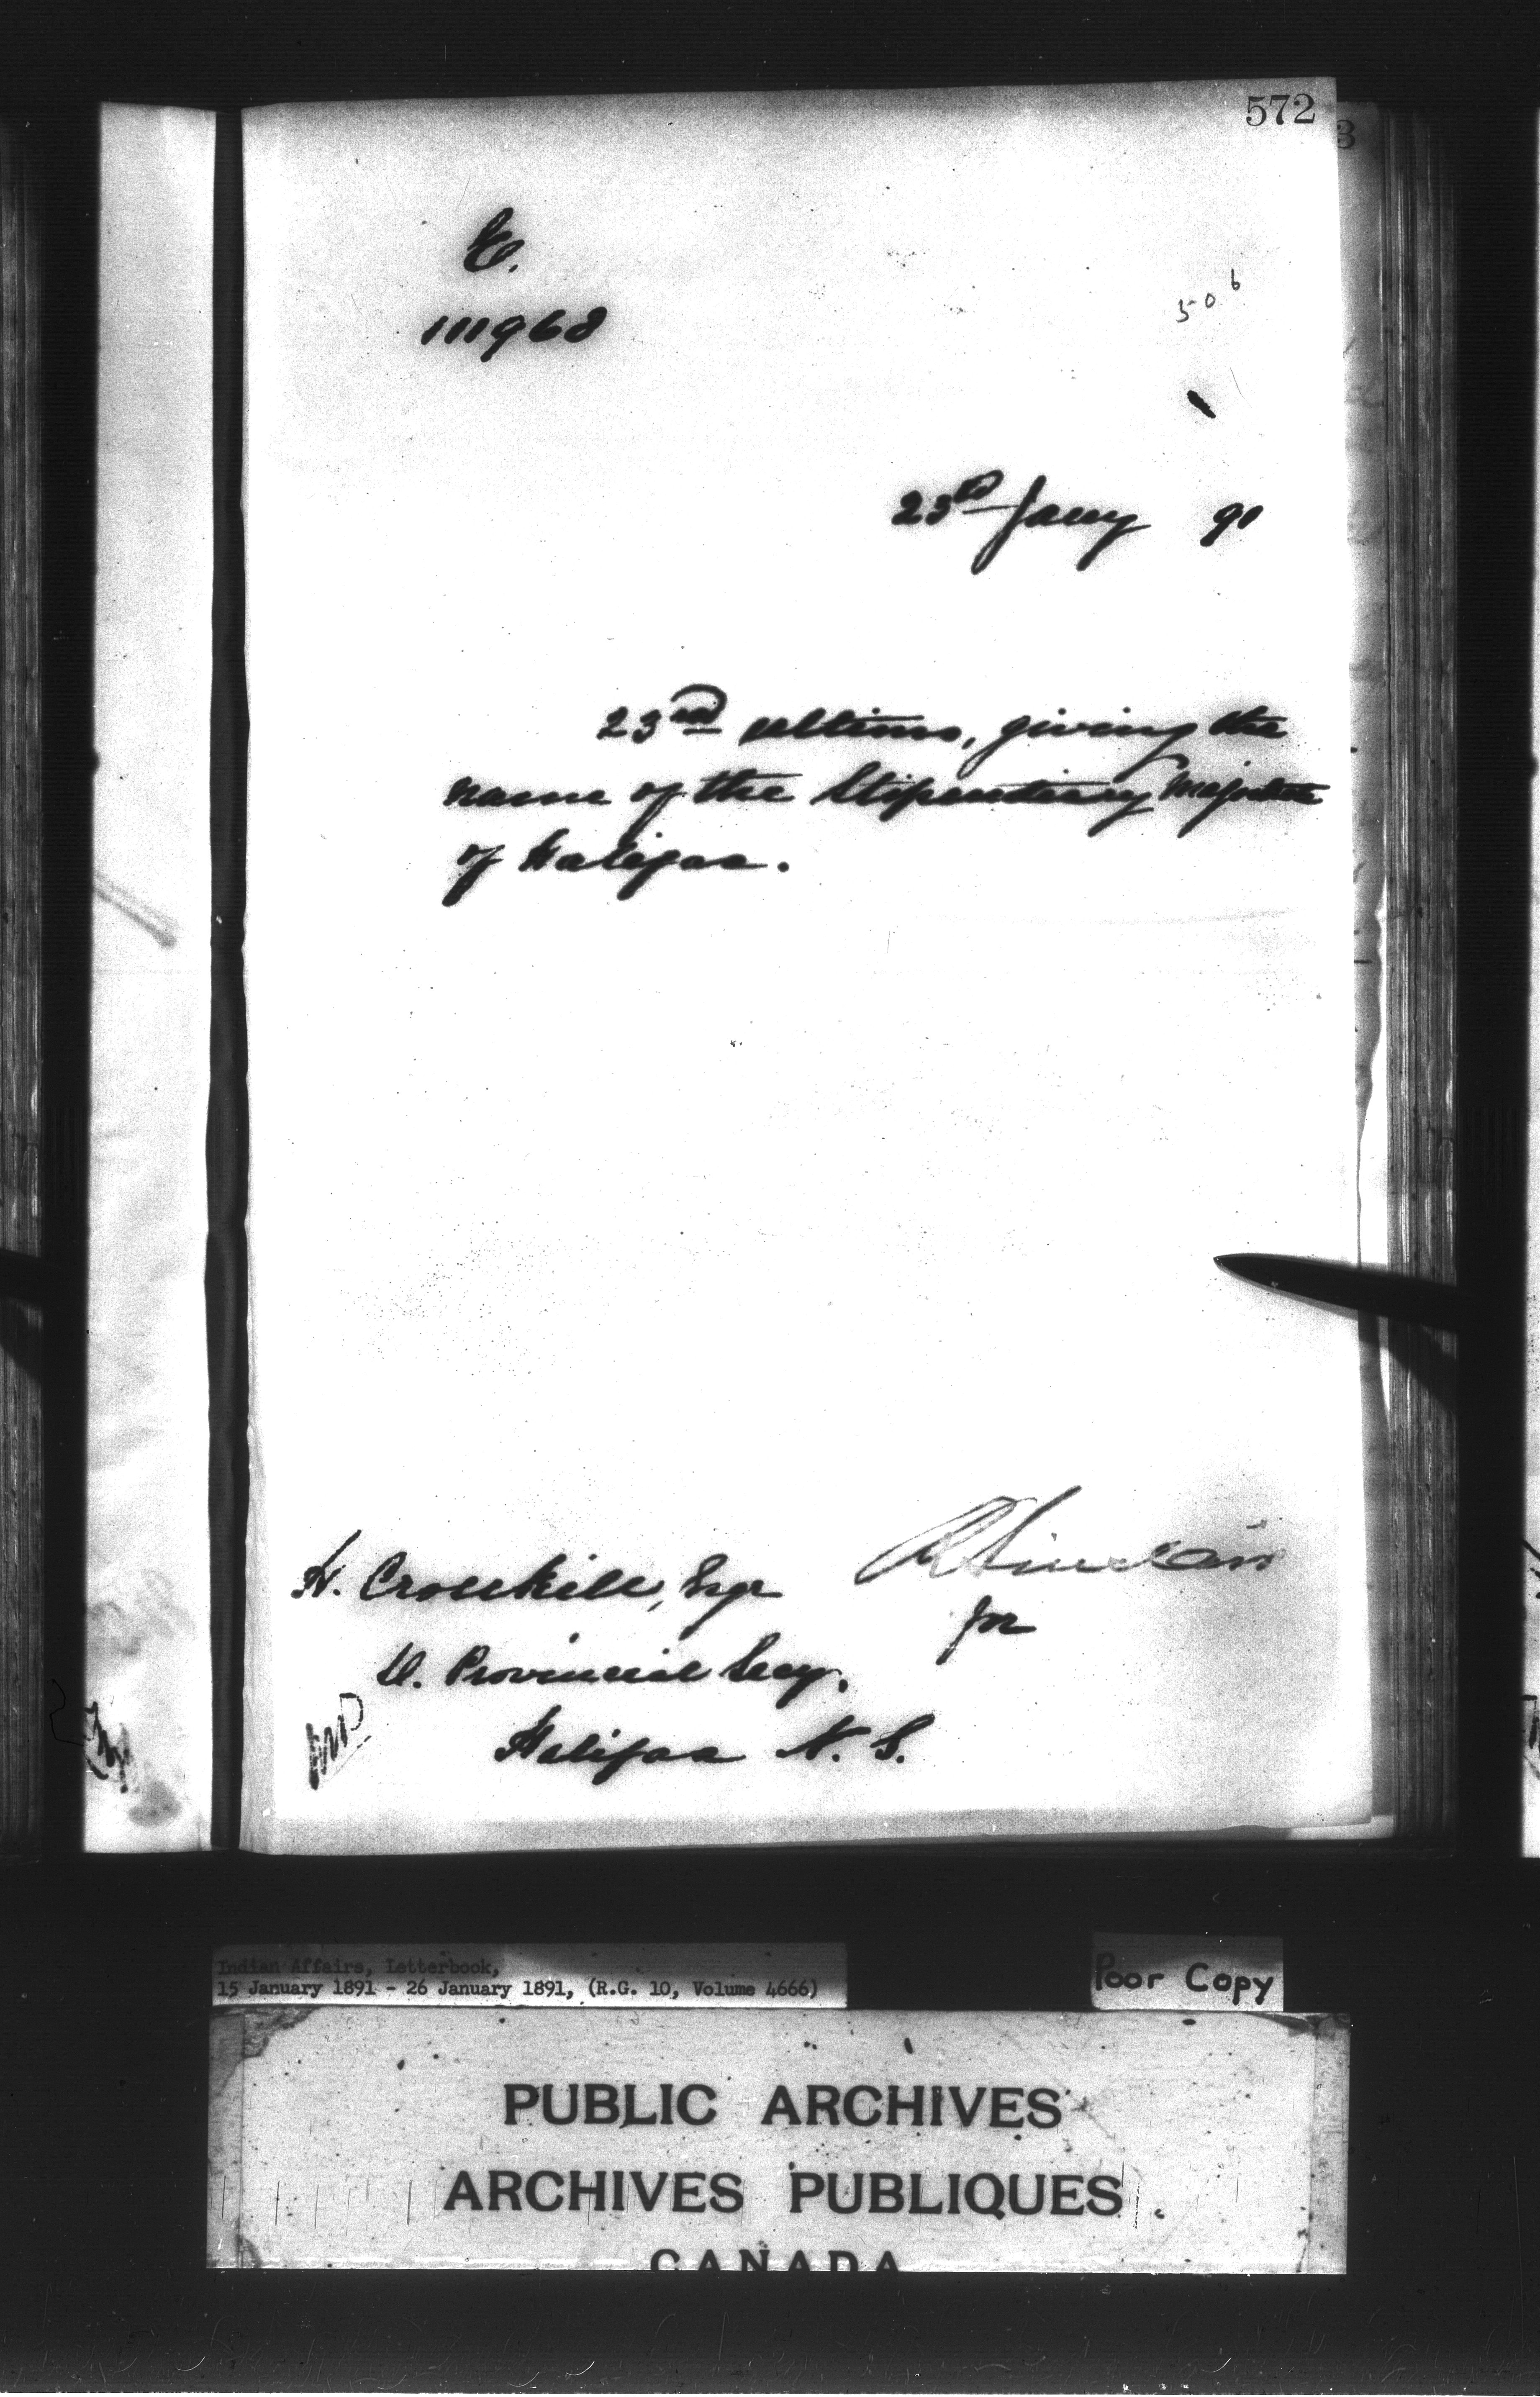 572
3
E.
111968
506
23rd Jany 91
23rd ultimo, giving the
name of the Stipendiary Magistrate
of Halifax.
R Sinclair
for
H. Crosskill, Esqr
D. Provincial Secy.
Halifax N. S.
Indian Affairs, Letterbook,
15 January 1891 - 26 January 1891, (R.G. 10, Volume 4666)
Poor Copy
PUBLIC ARCHIVES
ARCHIVES PUBLIQUES
CANADA